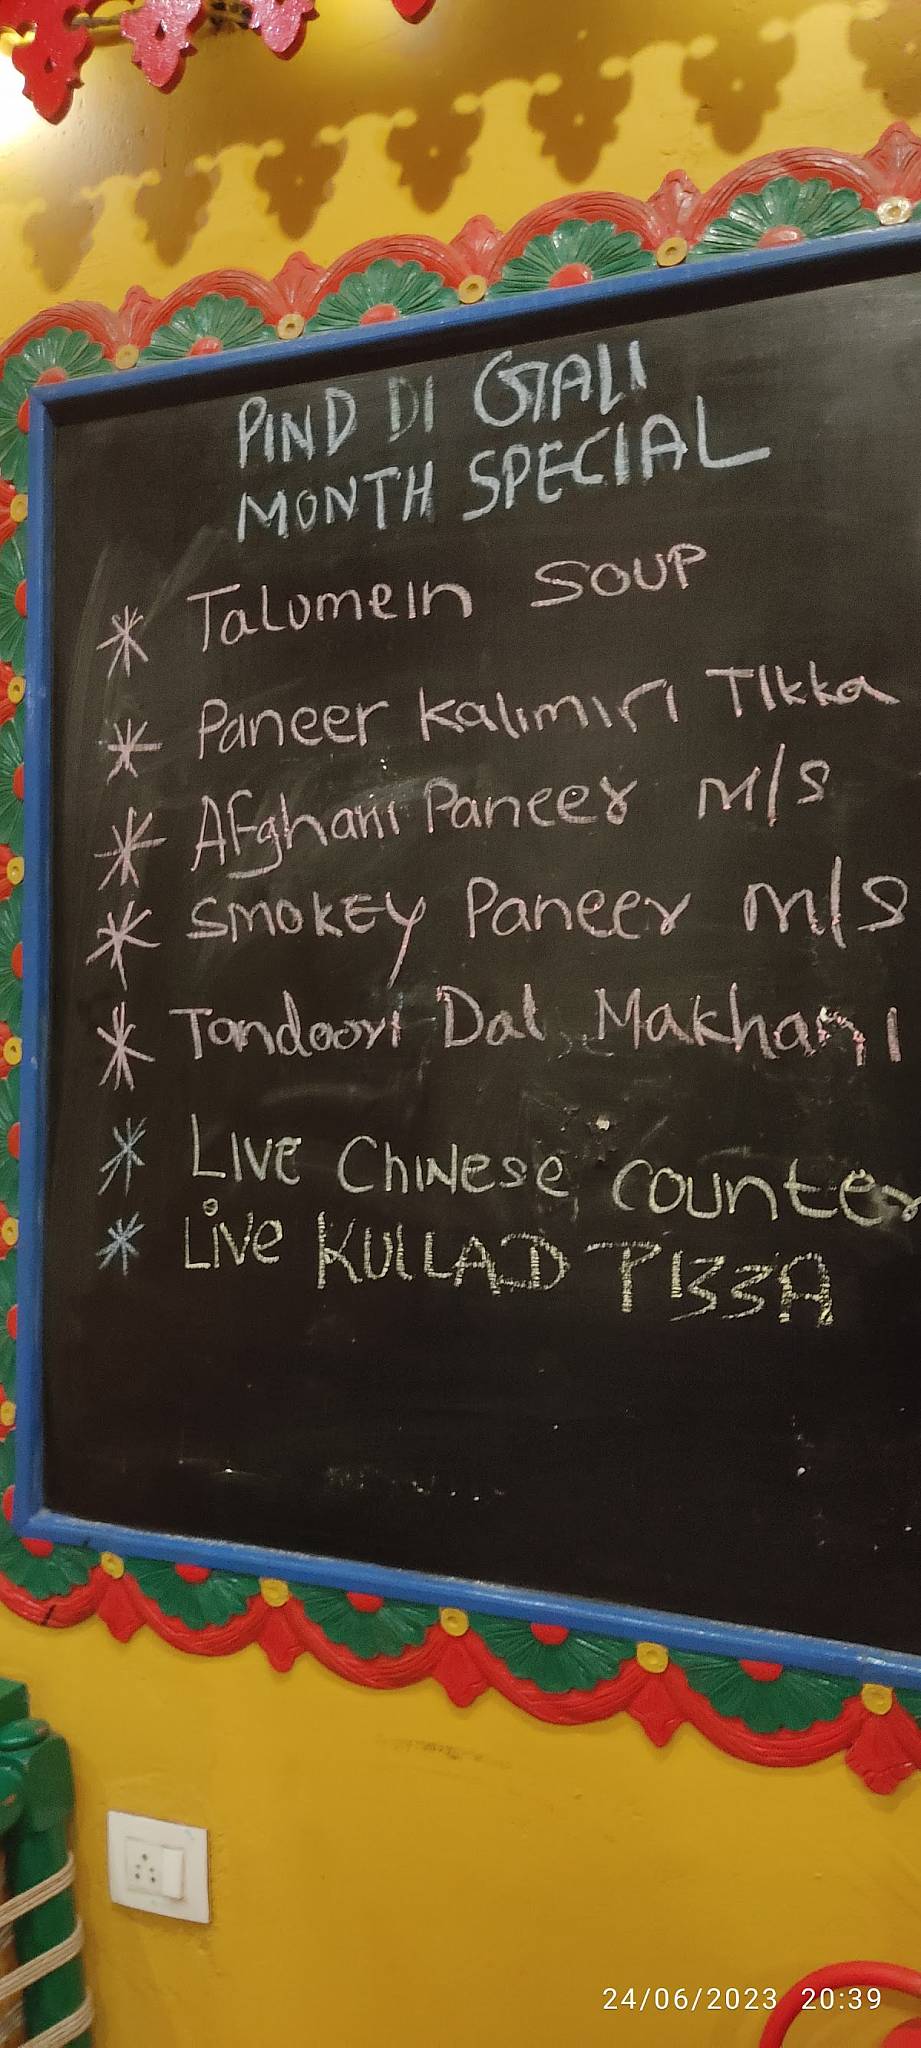 PIND DI GALI
MONTH SPECIAL
* Talumein SOUP
* Paneer Kalimiri TIkka
* AFghani Paneer M/S
* SMOKEY Paneer M/S
* Tandoori Dal Makhani
* LIVE ChiNese counter
* Live KULLAD PIZZA
24/06/2023 20:39